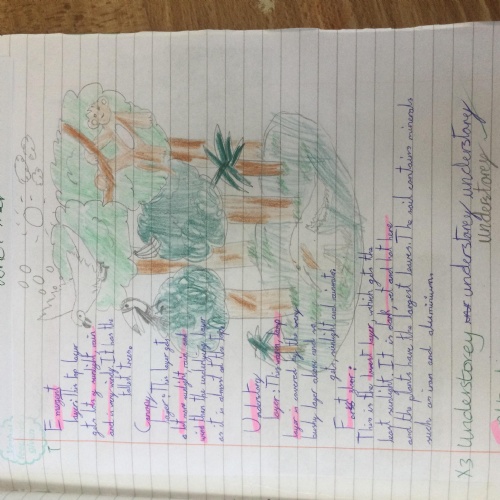 Emergent
layer: This top layer
gets lots of sunlight, rain
and is very windy. It has the
tallest trees.
Canopy
layer: This layer gets
a lot more sunlight, rain and
wind than the understorey layer
as it is almost at the top.
Understory
layer: This
layer is covered by the
layer above and so
gets sunlight and animals.
Forest floor:
This is the lowest layer, which gets the
least sunlight. It is dark and hot here
and the plants have the largest leaves. The soil contains minerals
such as iron and aluminium.
X3 Understorey understorey understorey
understorey